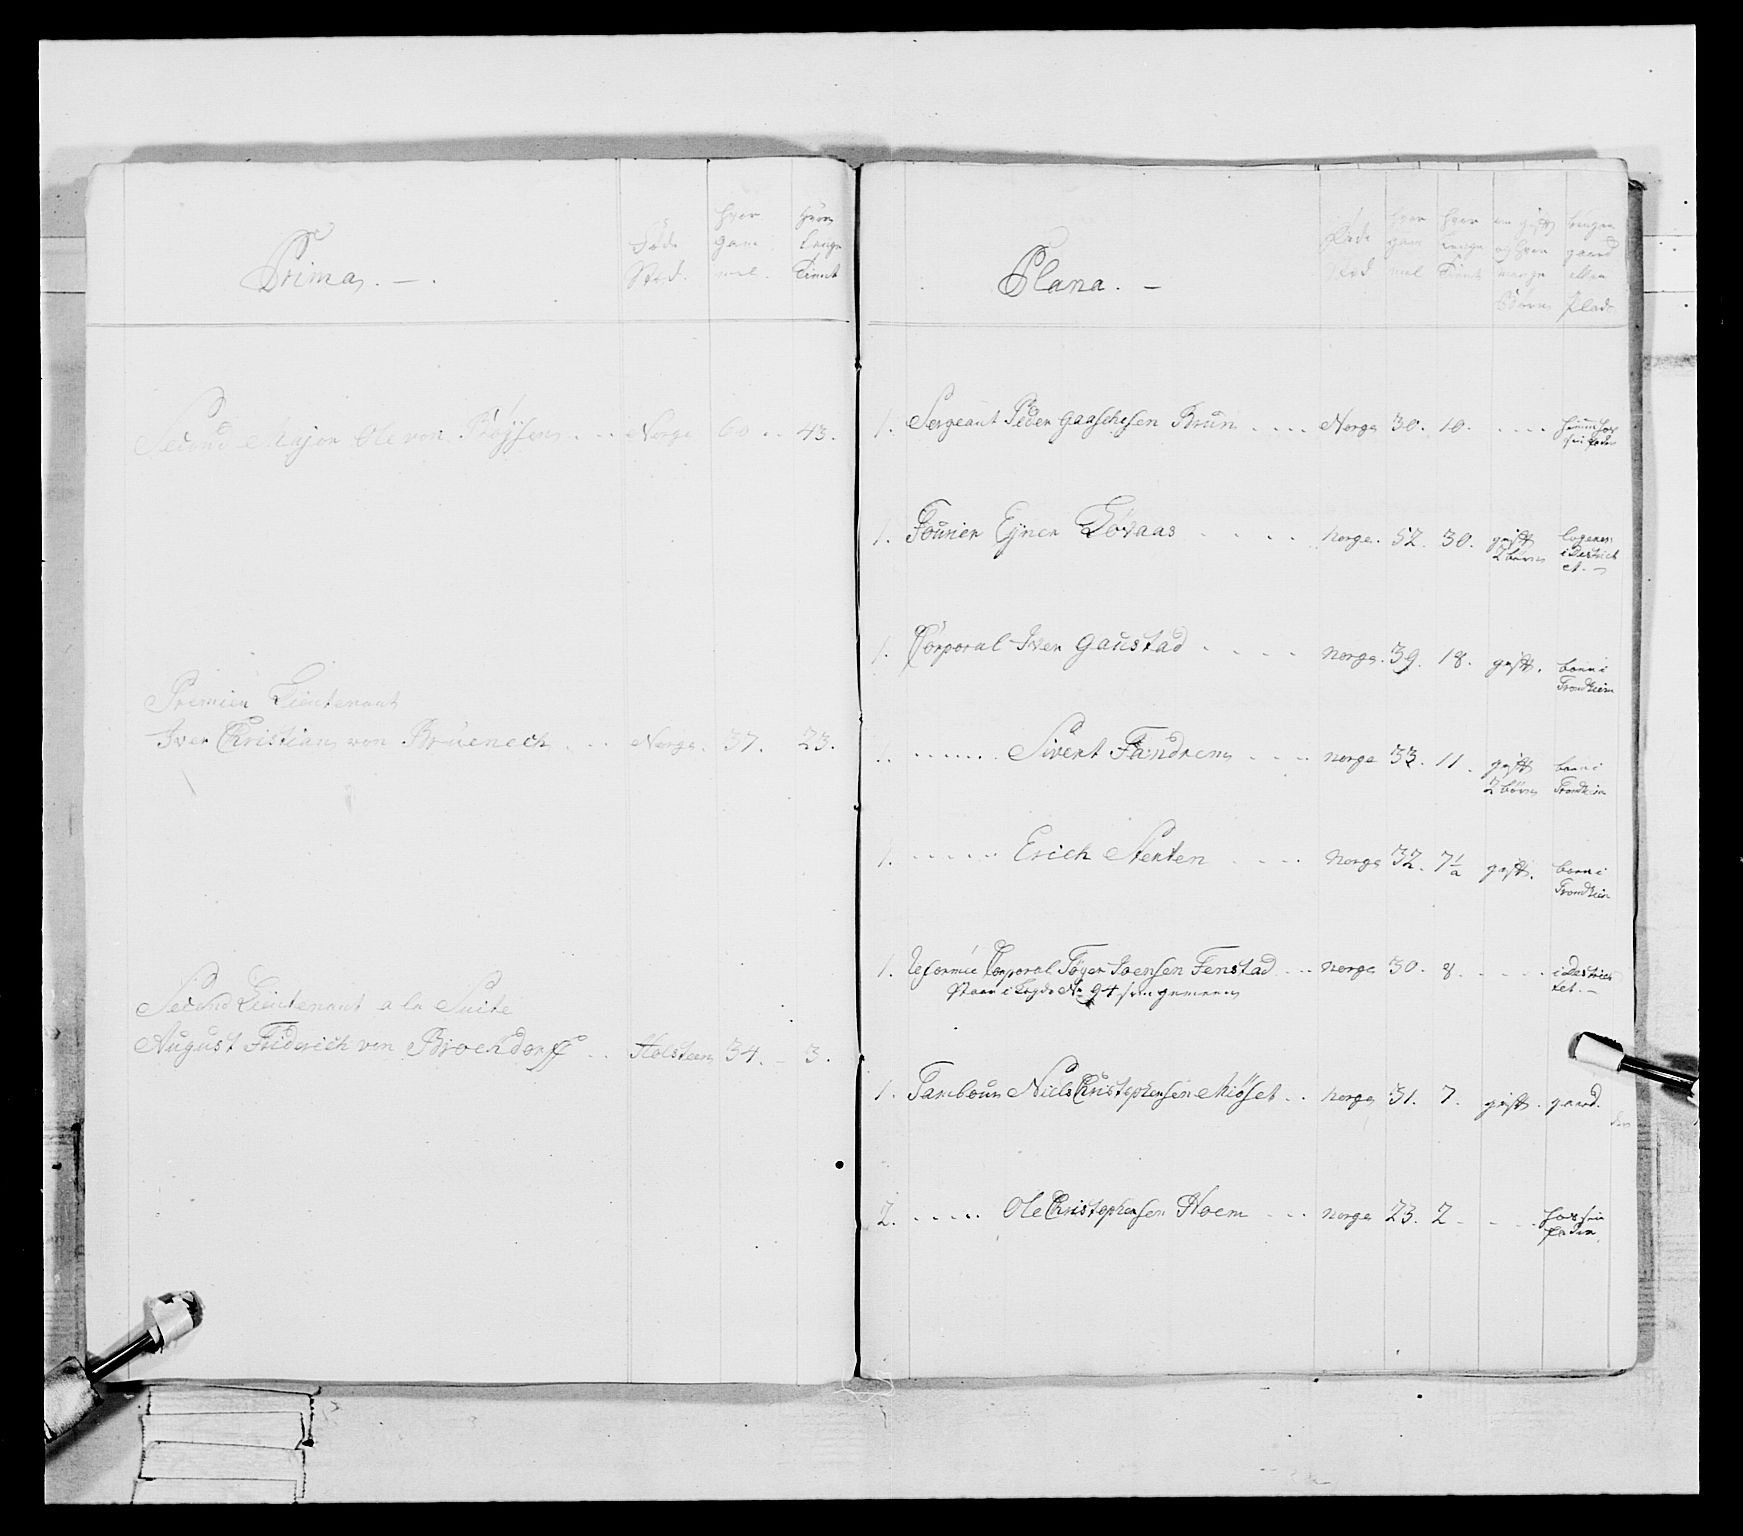 Prima. —.
Føde Sted.
hvor gam mel.
hvor Lenge Tient
Secund Major Ole von Røyssen . . . Norge 60 . . 43.
Premier Lieutenant
Iver Christian von Bruenech . . . Norge. 37. 23.
Second Lieutenant a la Suite
August Friderich von Brochdorff . . Holsteen 34. — 3.
Plana. —
Føde Sted
hvor gam mel
hvor lenge Tient
om gift og hvor mange Børn
gaard eller Plads
1. Sergeant Peder Gaaschesen Brun . . . . Norge 30. 10. . . . .
1. Fourier Ejner Løvaas . . . . norge. 52. 30. gift 2 børn logerer i Destrict et. —
1. Corporal Iver Gaustad . . . . norge. 39. 18. gift. boer i Trondhiem
1. . . . . . . Sivert Fandrem . . . . norge 33. 11. gift 2 børn boer i Trondhiem
1. . . . . . . Erich Stenten . . . . norge 32. 7½ gift. boer i Trondhiem
1. Reformie Corporal Tøger Joensen Fenstad . . . norge 30. 8. . . . . . i Destric tet. —
Staar i Lægd No 94 som gemeen
1. Tambour Niels Christophersen Miøset . . norge 31. 7. gift. gaard.
2. . . . . . Ole Christophersen Hoem . . . norge 23. 2 - - . . hos sin fader.